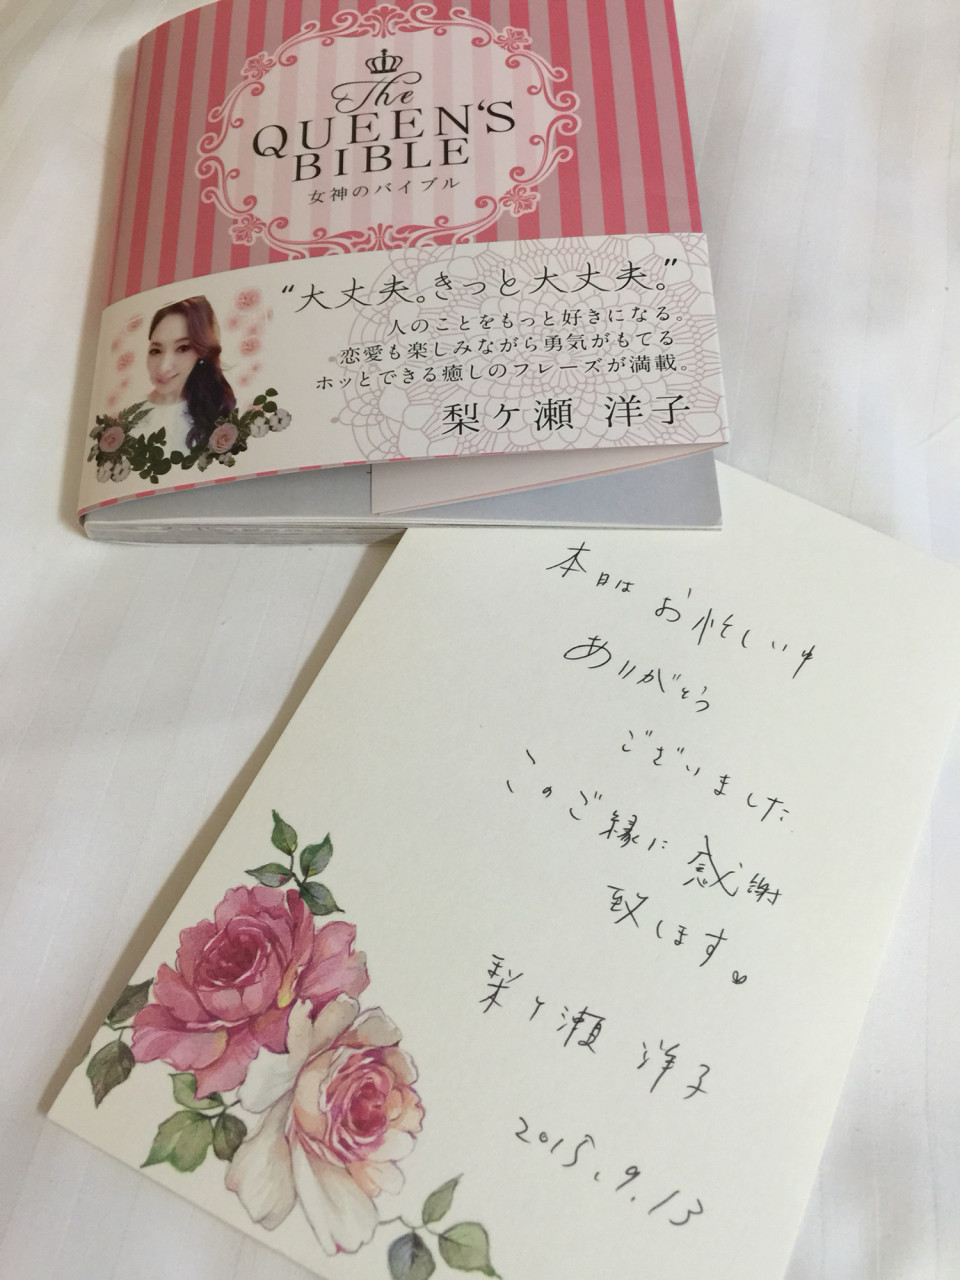 The
QUEEN'S
BIBLE
女神のバイブル
"大丈夫。きっと大丈夫。"
人のことをもっと好きになる。
恋愛も楽しみながら勇気がもてる
ホッとできる癒しのフレーズが満載。
梨ケ瀬 洋子
本日は お忙しい中
ありがとう
ございました
このご縁に 感謝
致します。
梨ケ瀬 洋子
2015.9.13